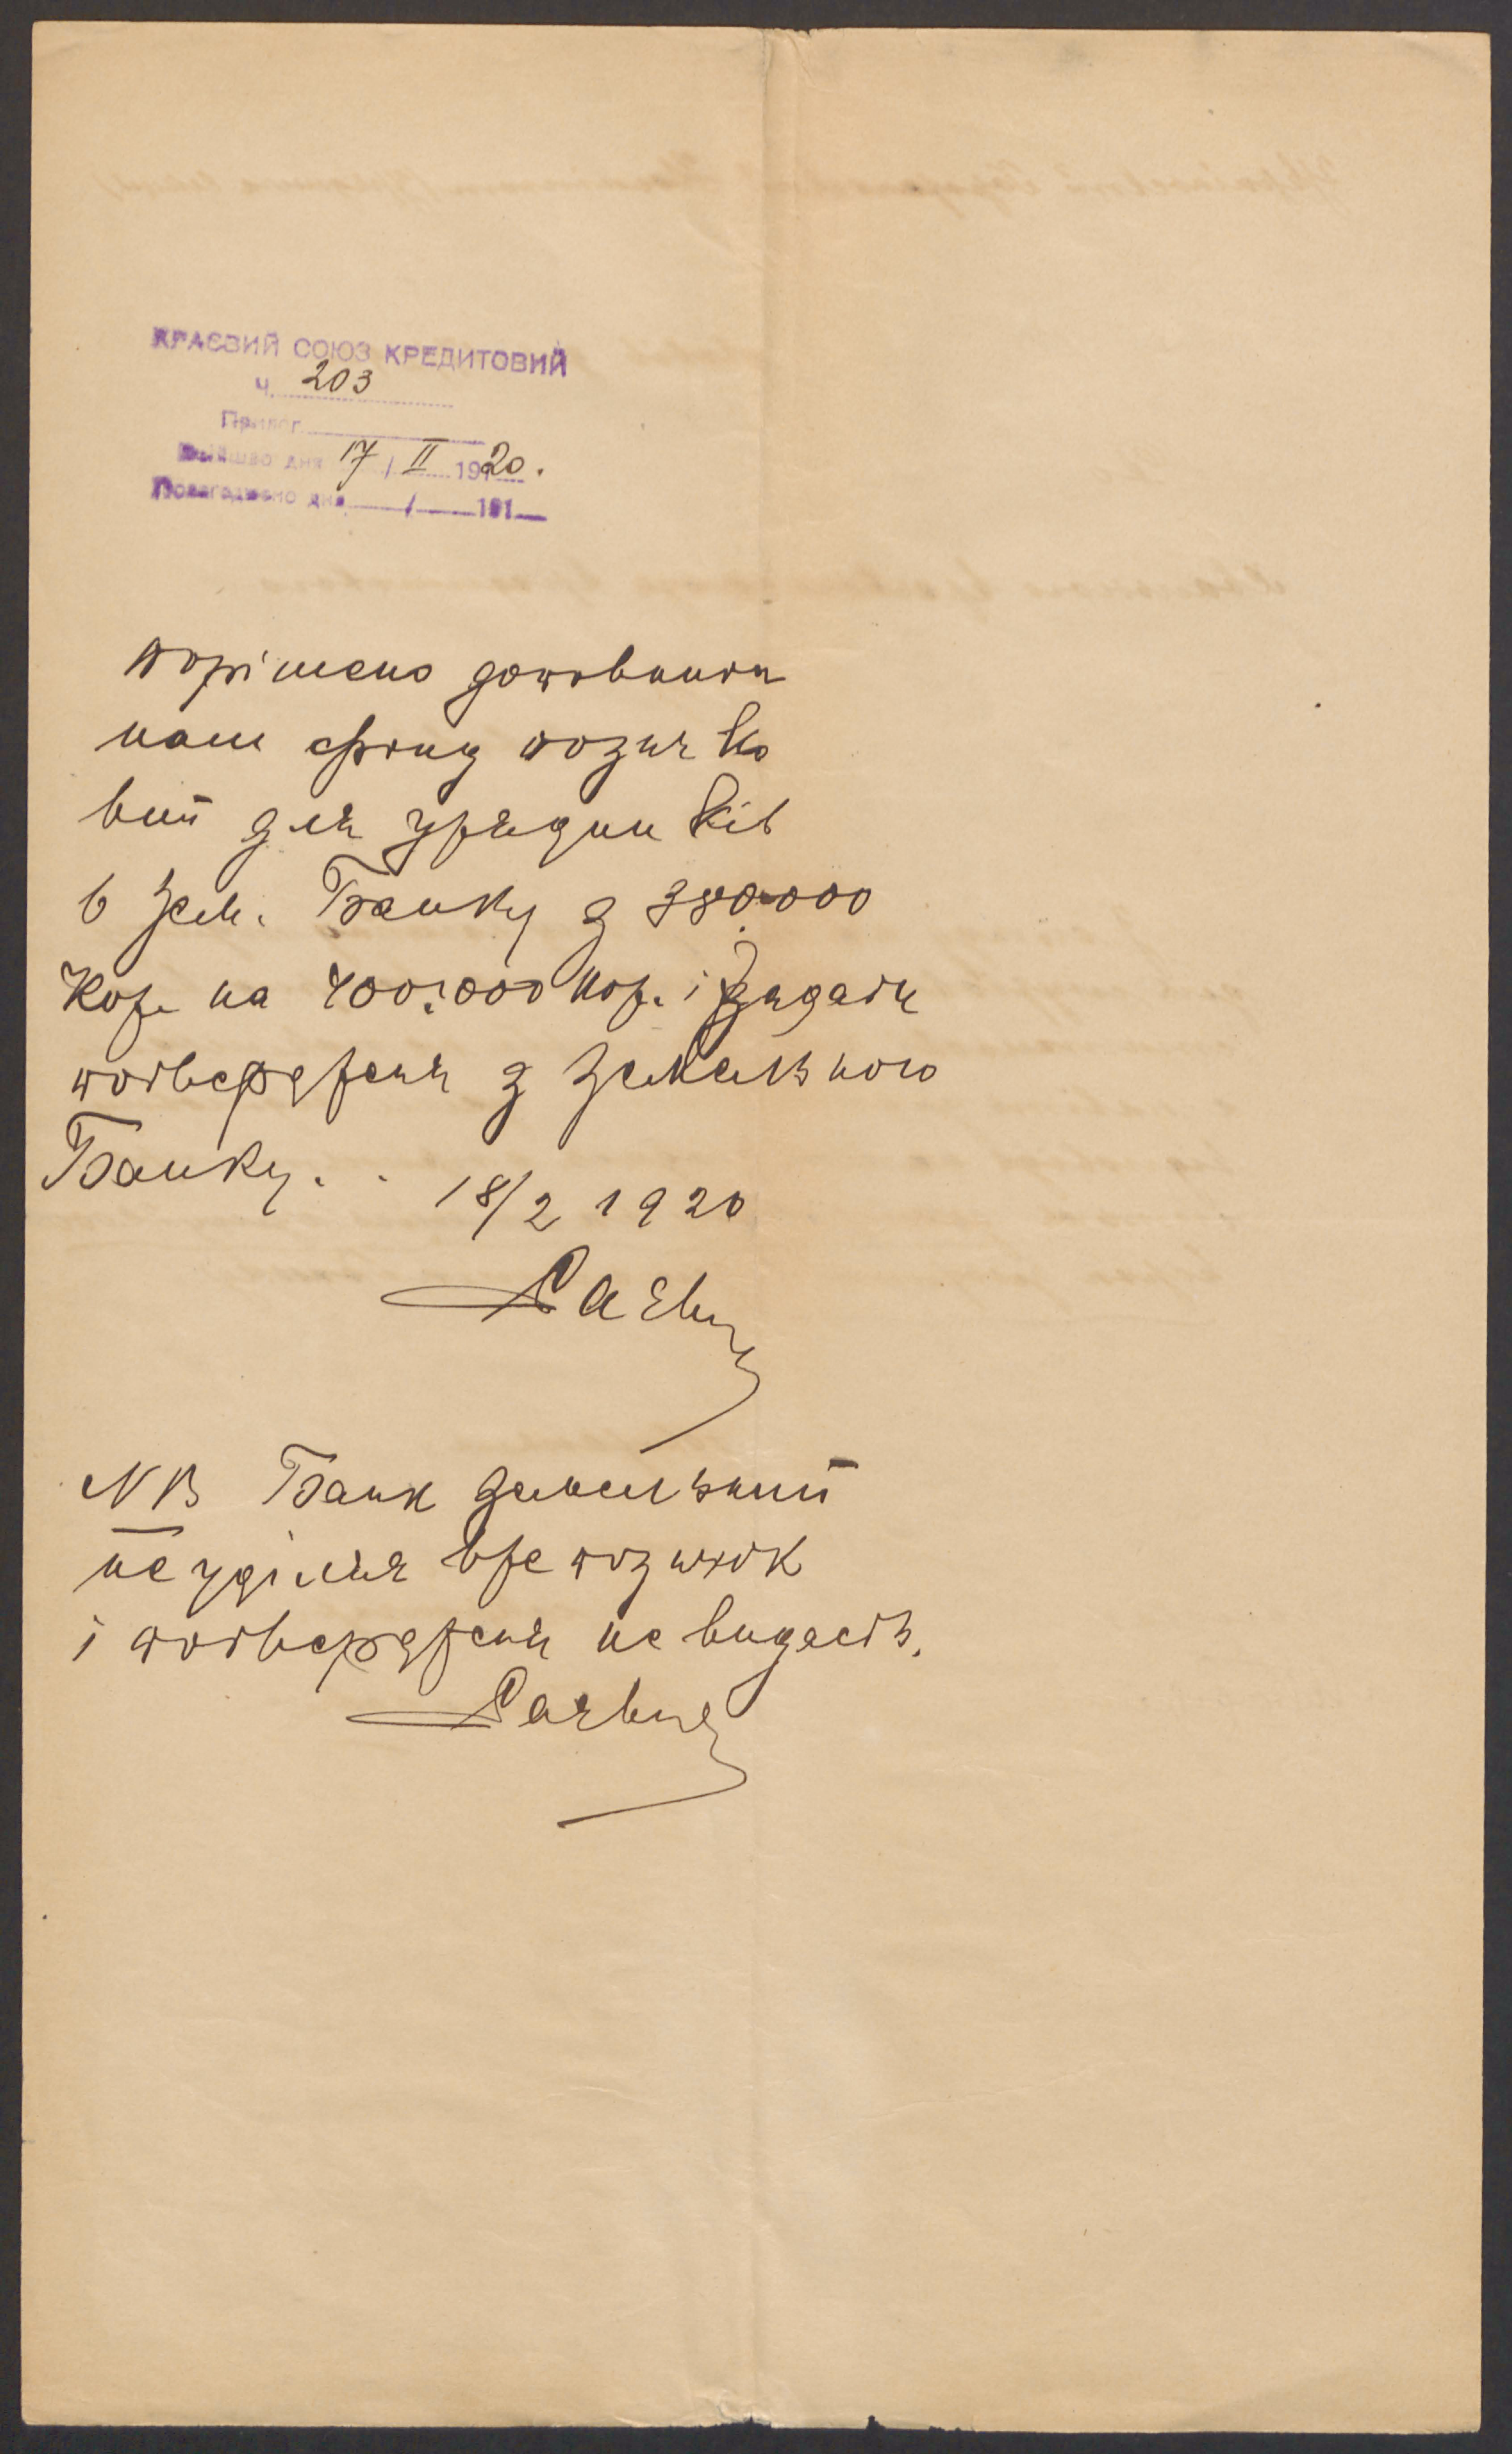 КРАЄВИЙ СОЮЗ КРЕДИТОВИЙ
Ч. 203
Прилог
Війшло дня 17 / II 1920.
Полагоджено дня / 191
порішено доповнити
наш фонд позичко
вий для урядників
в Зем. Банку з 380.000
Кор. на 400.000 кор. і зажадати
потвердженя з Земельного
Банку. . 18/2 1920
NB Банк земельний
не уділяя вже позичок
і потвердженя не видасть.